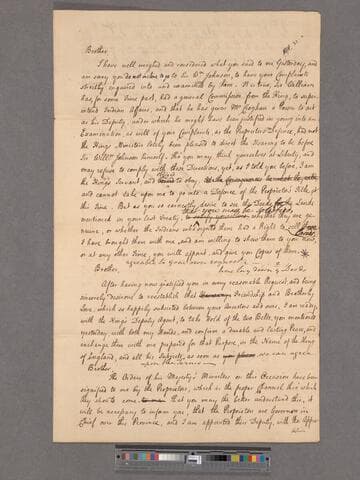 Brother
I have well weighed and considered what you said to me Yesterday, and
am sorry you do not incline to go to Sir Wm Johnson, to have your Complaints
strictly enquired into and examined by him. 'Tis true, Sir William
has, for some time past, had a general Commission from the King, to super
intend Indian Affairs, and that he has given Mr Croghan a Power to act
as his Deputy, under which he might have been justified in going into an
Examination, as well of your Complaints, as the Proprietors Defence, had not
the Kings Ministers lately been pleased to direct the Hearing to be before
Sir Willm Johnson himself. Tho you may think yourselves at Liberty, and
may refuse to comply with these Directions, yet, as I told you before, I am
the Kings Servant, and to obey,
and cannot take upon me to go into a Defence of the Proprietors Title, at
this time. But as you so earnestly desire to see the Deeds for the Lands
mentioned in your last Treaty, that you may be satisfied,
whether they are ge-
nuine, or whether the Indians who signed them had a Right to sell those Lands,
I have brought them with me, and am willing to shew them to you now,
or at any other Time, you will appoint, and give you Copies of them.
agreeable to your own request
Brother, here lay down the Deeds
After having now satisfied you in every reasonable Request, and being
sincerely desirous to reestablish that Friendship and Brotherly
Love, which so happily subsisted between your Ancestors and ours, I am ready,
with the King's Deputy Agent, to take hold of the two Belts, you mentioned
yesterday with both my Hands, and confirm a durable and lasting Peace, and
exchange those with one prepared for that Purpose, in the Name of the King
of England, and all his Subjects, as soon as we can agree
upon the terms
Brother
The Orders of his Majesty's Ministers on this Occasion have been
signified to me by the Proprietors, which is the proper Channel thro' which
they should come. that you may the better understand this, it
will be necessary to inform you, that the Proprietors are Governors in
Chief over this Province, and I am appointed their Deputy, with the Appro-